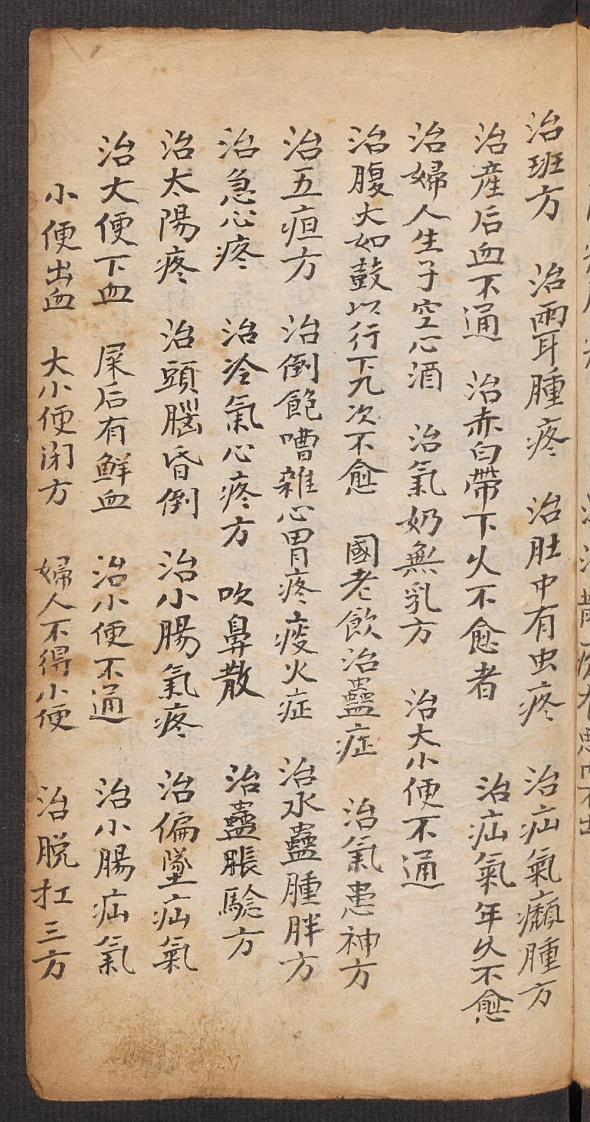 治班方　治兩耳腫疼　治肚中有虫疼　治疝氣㿗腫方
治産后血不通　治赤白帶下久不愈者　治疝氣年久不愈
治婦人生子空心酒　治氣奶無乳方　治大小便不通
治腹大如鼓以行下九次不愈　國老飲治蠱症　治氣患神方
治五疸方　治倒飽嘈雜心胃疼痰火症　治水蠱腫胖方
治急心疼　治冷氣心疼方　吹鼻散　治蠱脹驗方
治太陽疼　治頭腦昏倒　治小腸氣疼　治偏墜疝氣
治大便下血　屎后有鮮血　治小便不通　治小腸疝氣
小便出血　大小便闭方　婦人不得小便　治脱扛三方